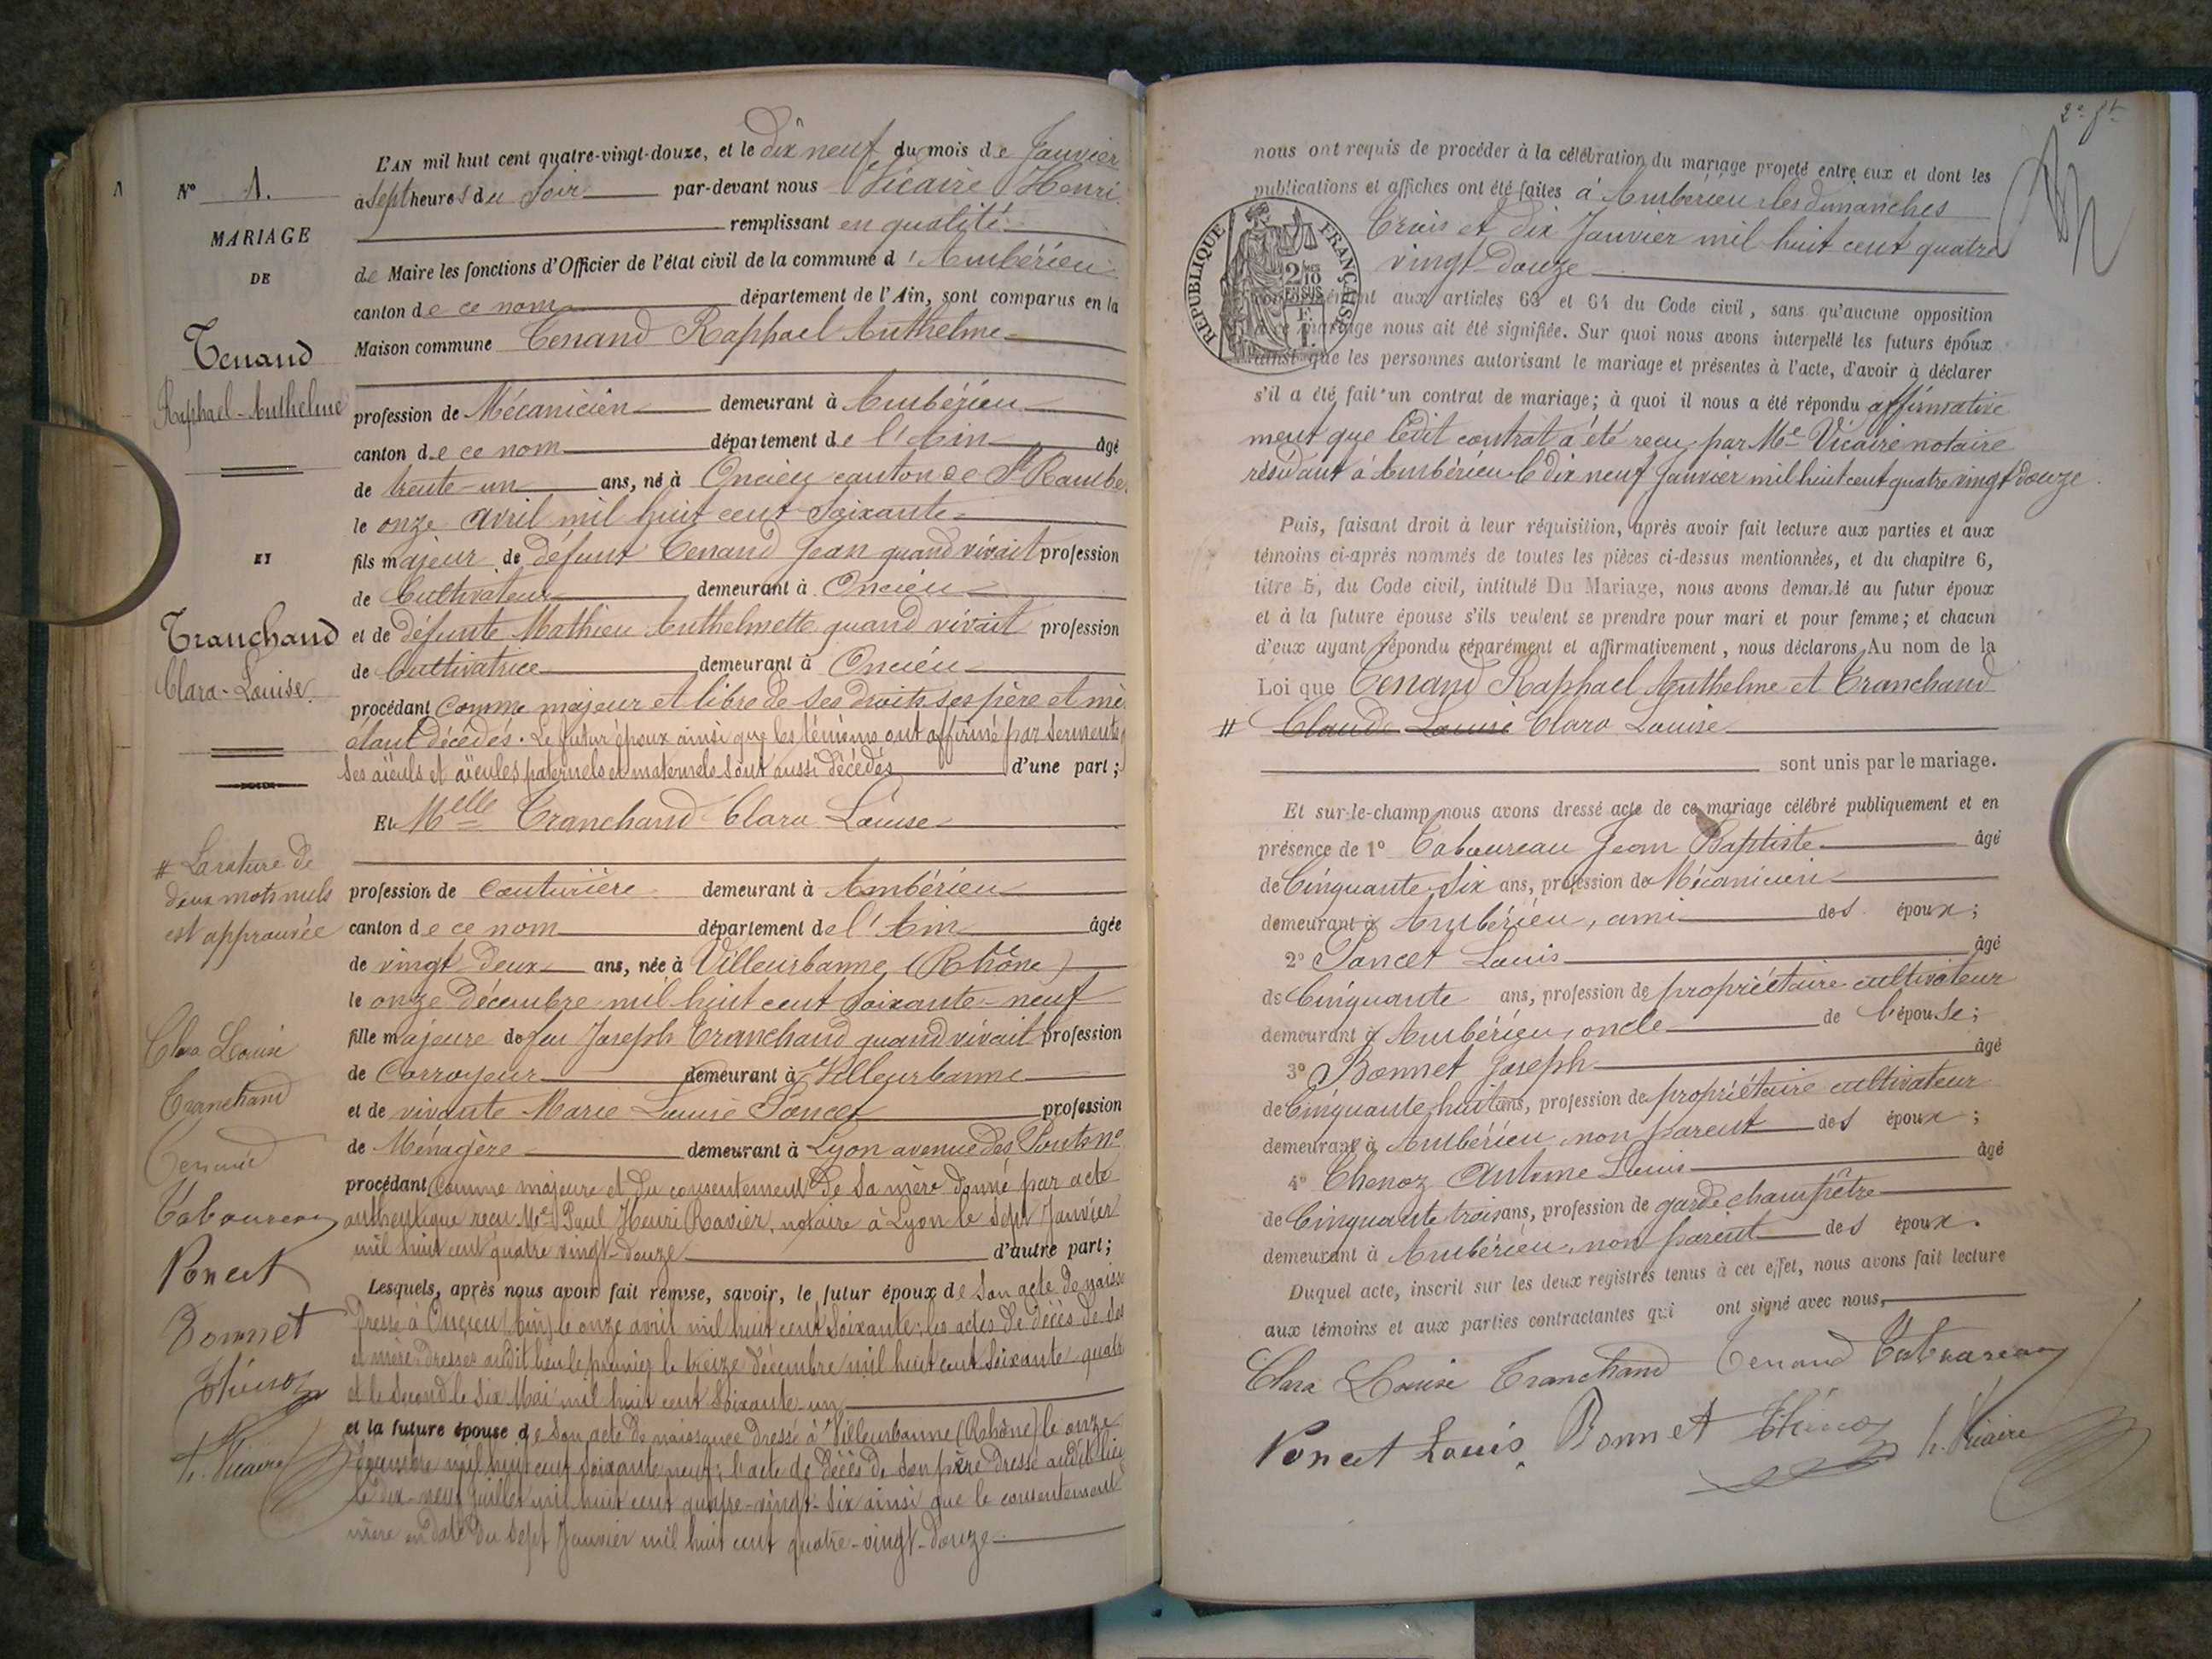 N° 1.
MARIAGE
DE
Tenand
Raphael-Anthelme
ET
Tranchand
Clara-Louise.
# La rature de
deux mots nuls
est approuvée
Clara Louise
Tranchand
Tenand
Taboureau
Poncet
Bonnet
Thénoz
h. Vicaire
L'AN mil huit cent quatre-vingt-douze, et le dix neuf du mois de Janvier
à sept heures du soir par-devant nous Vicaire Henri
remplissant en qualité
de Maire les fonctions d'Officier de l'état civil de la commune d'Ambérieu
canton de ce nom département de l'Ain, sont comparus en la
Maison commune Tenand Raphael Anthelme
profession de Mécanicien demeurant à Ambérieu
canton de ce nom département de l'Ain âgé
de trente-un ans, né à Oncieu canton de St Rambe
le onze avril mil huit cent soixante
fils majeur de défunt Tenand Jean quand vivait profession
de Cultivateur demeurant à Oncieu
et de défunte Mathieu Anthelmette quand vivait profession
de Cultivatrice demeurant à Oncieu
procédant comme majeur et libre de ses droits ses père et mè
étant décédés. Le futur époux ainsi que les témoins ont affirmé par serments
ses aïeuls et aïeules paternels et maternels sont aussi décédés d'une part;
Et Melle Tranchand Clara Louise
profession de Couturière demeurant à Ambérieu
canton de ce nom département de l'Ain âgée
de vingt deux ans, née à Villeurbanne (Rhône)
le onze décembre mil huit cent soixante-neuf
fille majeure de feu Joseph Tranchand quand vivait profession
de Corroyeur demeurant à Villeurbanne
et de vivante Marie Louise Poncet profession
de Ménagère demeurant à Lyon avenue des Ponts no
procédant comme majeure et du consentement de sa mère donné par acte
authentique reçu Me Paul Henri Ravier, notaire à Lyon le sept Janvier
mil huit cent quatre vingt-douze d'autre part;
Lesquels, après nous avoir fait remise, savoir, le futur époux de son acte de naiss
dressé à Oncieu (Ain) le onze avril mil huit cent soixante; les actes de décès de ses
et mère dressés audit lieu le premier le treize décembre mil huit cent soixante quatr
et le second le six Mai mil huit cent soixante-un
et la future épouse de son acte de naissance dressé à Villeurbanne (Rhône) le onze
décembre mil huit cent soixante neuf; l'acte de décès de son père dressé audit lieu
le dix-neuf juillet mil huit cent quatre-vingt-six ainsi que le consentement
mère en date du sept Janvier mil huit cent quatre-vingt-douze
nous ont requis de procéder à la célébration du mariage projeté entre eux et dont les
publications et affiches ont été faites à Ambérieu les dimanches
trois et dix Janvier mil huit cent quatre
vingt-douze
RÉPUBLIQUE FRANÇAISE
conformément aux articles 63 et 64 du Code civil, sans qu'aucune opposition
à ce mariage nous ait été signifiée. Sur quoi nous avons interpellé les futurs époux
ainsi que les personnes autorisant le mariage et présentes à l'acte, d'avoir à déclarer
s'il a été fait un contrat de mariage; à quoi il nous a été répondu affirmative
ment que ledit contrat a été reçu par Me Vicaire notaire
résidant à Ambérieu le dix neuf Janvier mil huit cent quatre vingt douze.
Puis, faisant droit à leur réquisition, après avoir fait lecture aux parties et aux
témoins ci-après nommés de toutes les pièces ci-dessus mentionnées, et du chapitre 6,
titre 5, du Code civil, intitulé Du Mariage, nous avons demandé au futur époux
et à la future épouse s'ils veulent se prendre pour mari et pour femme; et chacun
d'eux ayant répondu séparément et affirmativement, nous déclarons, Au nom de la
Loi que Tenand Raphael Anthelme et Tranchand
# Claude Louise Clara Louise
sont unis par le mariage.
Et sur-le-champ nous avons dressé acte de ce mariage célébré publiquement et en
présence de 1° Taboureau Jean Baptiste âgé
de Cinquante six ans, profession de Mécanicien
demeurant à Ambérieu, ami des époux;
2° Poncet Louis âgé
de Cinquante ans, profession de propriétaire cultivateur
demeurant à Ambérieu, oncle de l'épouse;
3° Bonnet Joseph âgé
de Cinquante huit ans, profession de propriétaire cultivateur
demeurant à Ambérieu, non parent des époux;
4° Thenoz Antoine Louis âgé
de Cinquante trois ans, profession de garde champêtre
demeurant à Ambérieu, non parent des époux.
Duquel acte, inscrit sur les deux registres tenus à cet effet, nous avons fait lecture
aux témoins et aux parties contractantes qui ont signé avec nous,
Clara Louise Tranchand Tenand Taboureau
Poncet Louis Bonnet Thénoz h. Vicaire